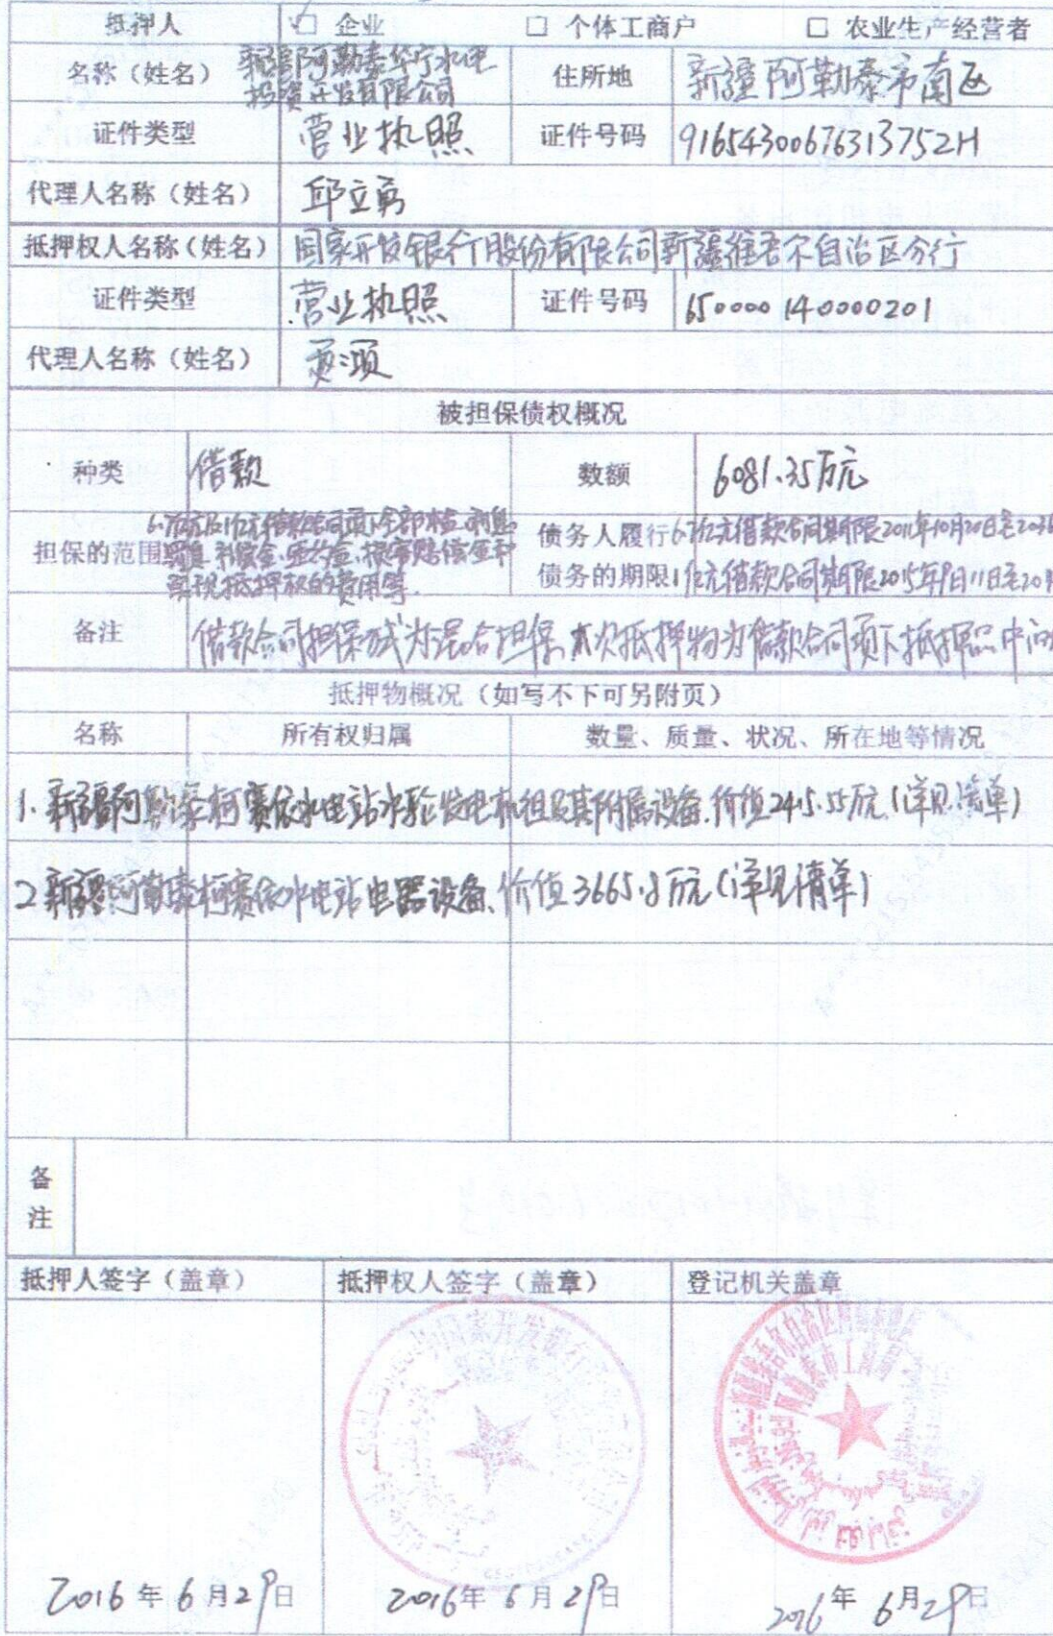 抵押人 ☑ 企业 □ 个体工商户 □ 农业生产经营者
名称（姓名） 新疆阿勒泰华宁水电
投资开发有限公司 住所地 新疆阿勒泰市南区
证件类型 营业执照 证件号码 91654300676313752H
代理人名称（姓名） 邱立勇
抵押权人名称（姓名） 国家开发银行股份有限公司新疆维吾尔自治区分行
证件类型 营业执照 证件号码 650000140000201
代理人名称（姓名）
被担保债权概况
种类 借款 数额 6081.35万元
担保的范围 6.7亿元及1亿元借款合同项下全部本金、利息、
罚息、补偿金、违约金、损害赔偿金和
实现抵押权的费用等.
债务人履行 6.7亿元借款合同期限2011年10月20日至20
债务的期限 1亿元借款合同期限2015年9月11日至20
备注 借款合同担保方式为混合担保,本次抵押物为借款合同项下抵押品中
抵押物概况（如写不下可另附页）
名称 所有权归属 数量、质量、状况、所在地等情况
1. 新疆阿勒泰柯赛依水电站水轮发电机组及其附属设备.价值2415.55万元.(详见清单)
2 新疆阿勒泰柯赛依水电站电器设备、价值3665.8万元(详见清单)
备
注
抵押人签字（盖章） 抵押权人签字（盖章） 登记机关盖章
2016年6月29日 2016年6月29日 2016年6月29日